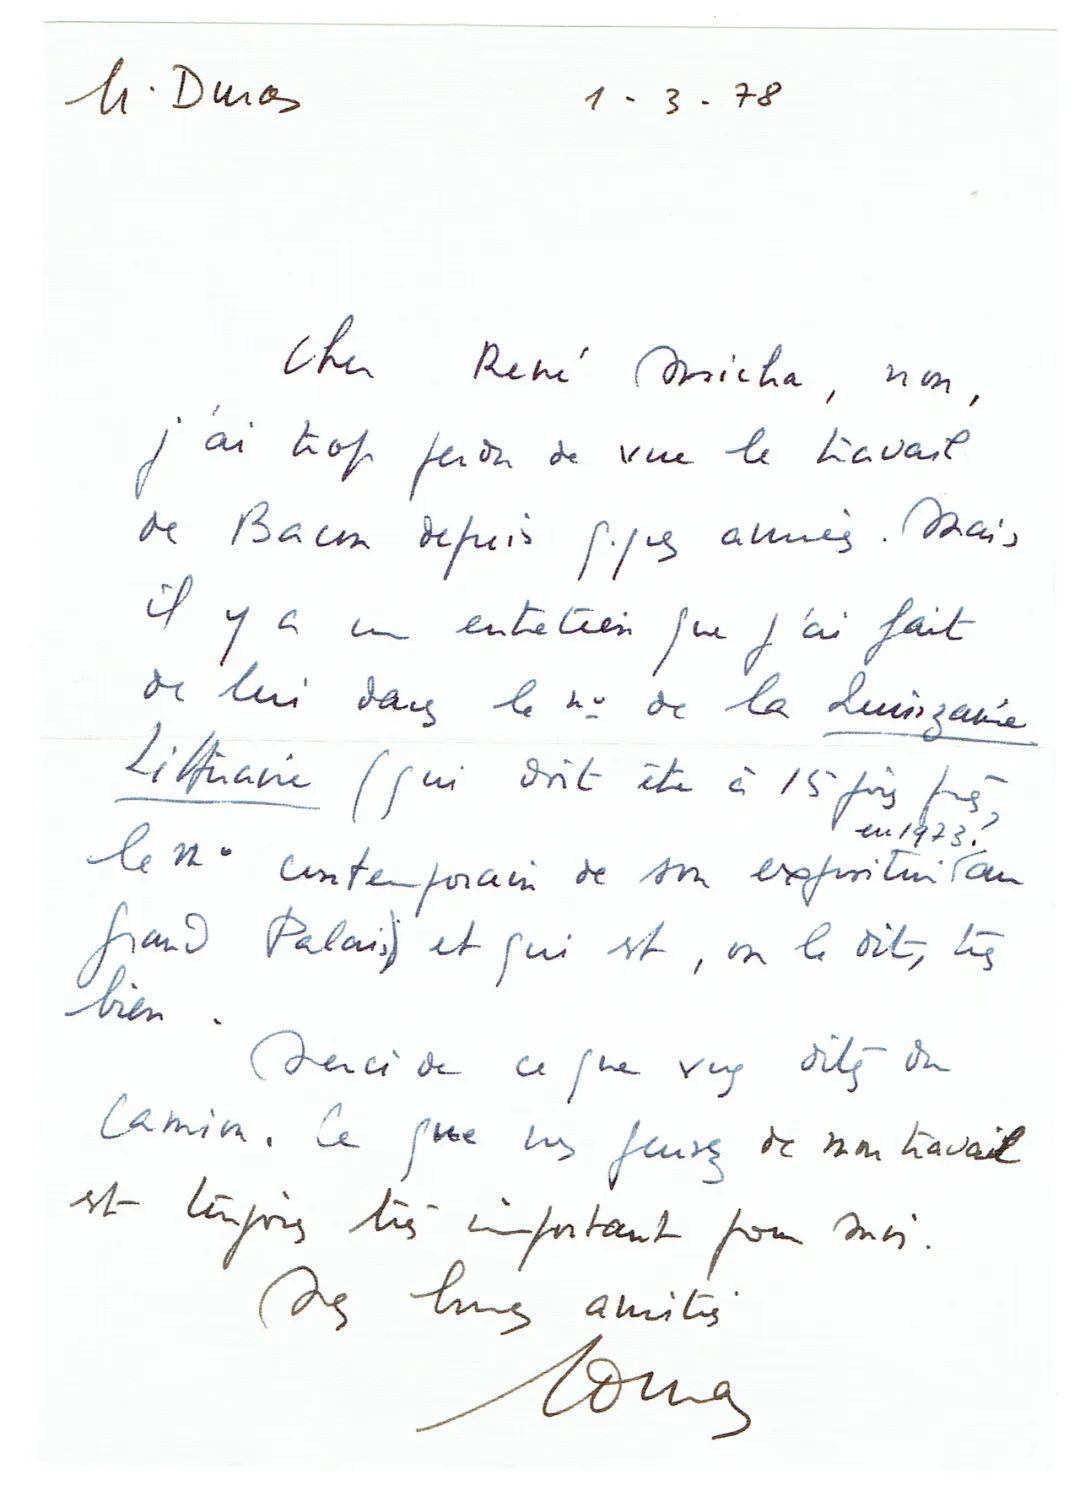 M. Duras 1-3-78
Cher René Micha, non,
j'ai trop perdu de vue le travail
de Bacon depuis qques années. Mais
il y a un entretien que j'ai fait
de lui dans le nº de la Quinzaine
Littéraire (qui doit être à 15 jours près,
en 1973?
le nº contemporain de son exposition au
Grand Palais) et qui est, on le dit, très
bien.
Merci de ce que vous dites du
Camion. Ce que vous pensez de mon travail
est toujours très important pour moi.
Mes bonnes amitiés
Duras